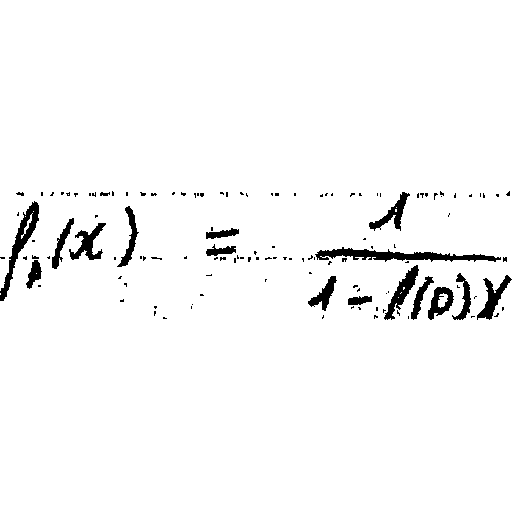 f₁(x) = 1 / (1 - f(0)x)